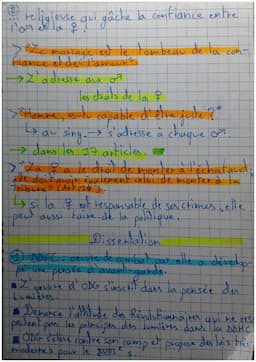 religieuse qui gâche la confiance entre
l'♂ et la ♀.
> "Le mariage est le tombeau de la con-
fiance et de l'amour"
→ S'adresse aux ♂
les droits de la ♀
> "Homme, es-tu capable d'être juste ?"
↳ au sing. → s'adresse à chaque ♂
→ dans les 17 articles.
> "La ♀ a le droit de monter à l'échafaud,
également celui de monter à la
tribune"
↳ si la ♀ est responsable de ses crimes, elle
peut aussi faire de la politique.
Dissertation
DDFC : œuvre de combat car elle a développé
une pensée d'avant-garde.
■ L'œuvre d'ODG s'inscrit dans la pensée des
Lumières.
■ Dénonce l'attitude des Révolutionnaires qui ne res-
pectent pas les principes des lumières dans la DDHC
■ ODG s'élève contre son camp et propose des lois très
modernes pour le